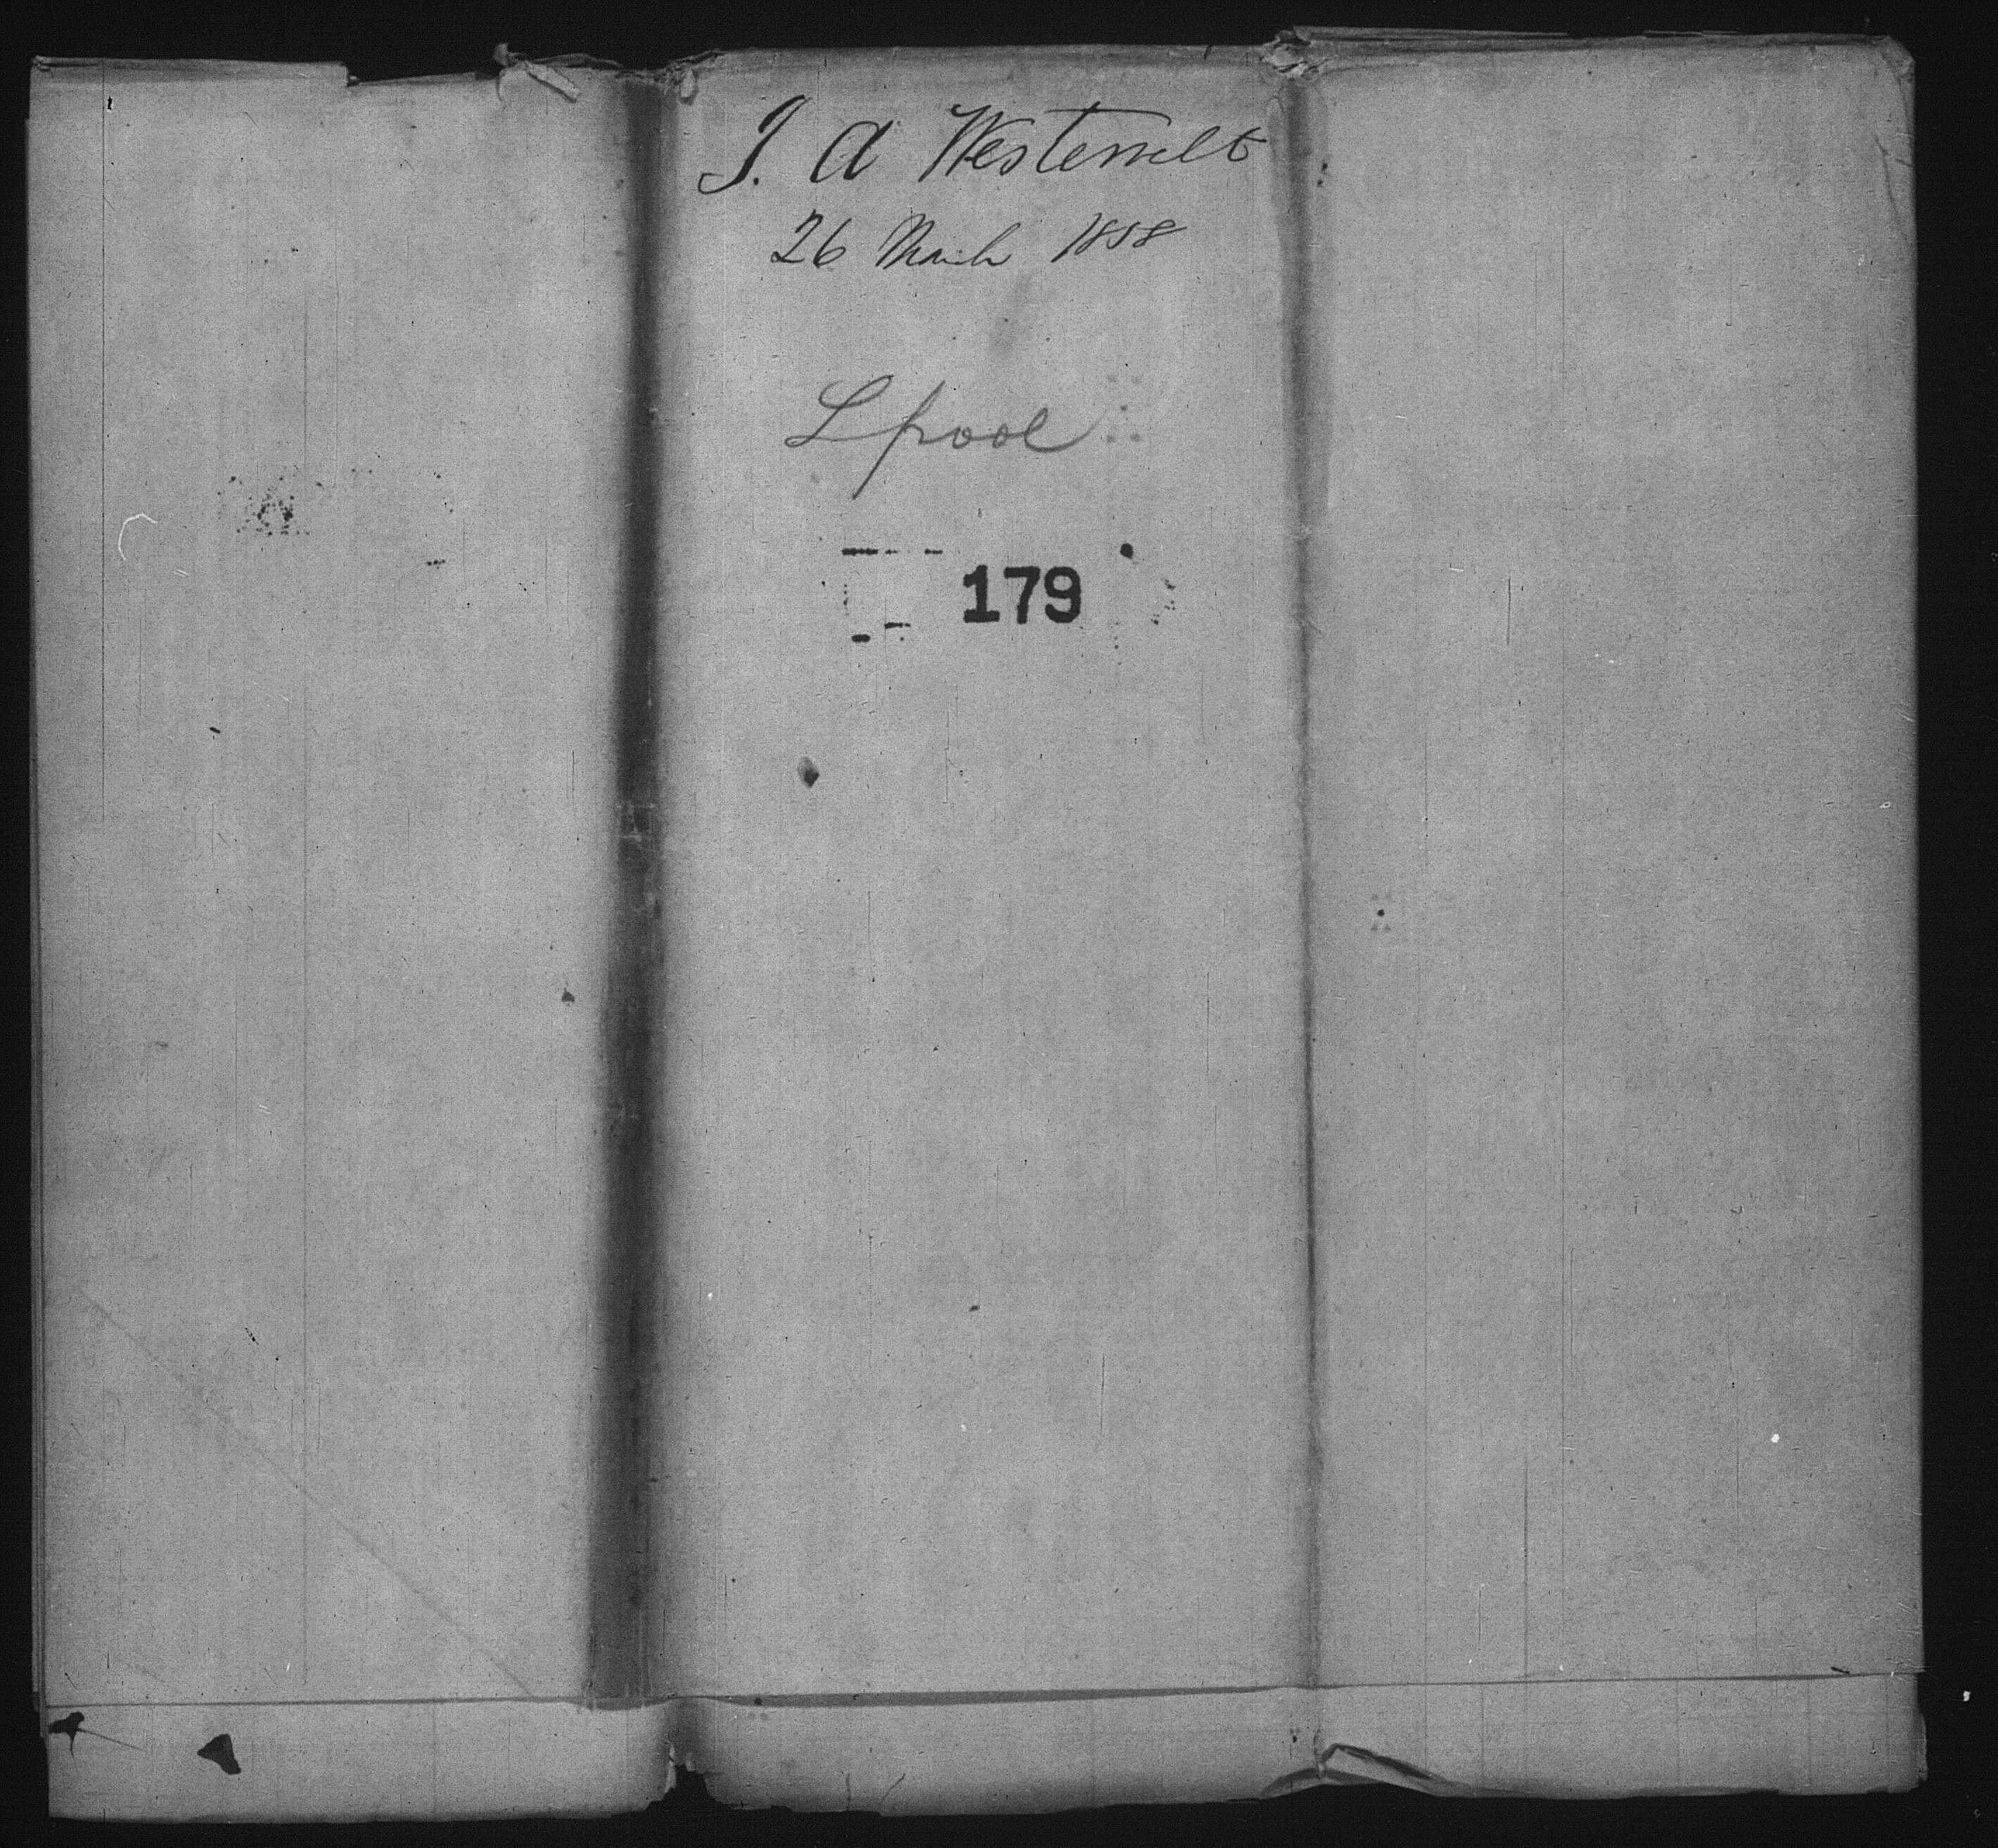 J. A Westervelt
26 March 1858
Lpool
179